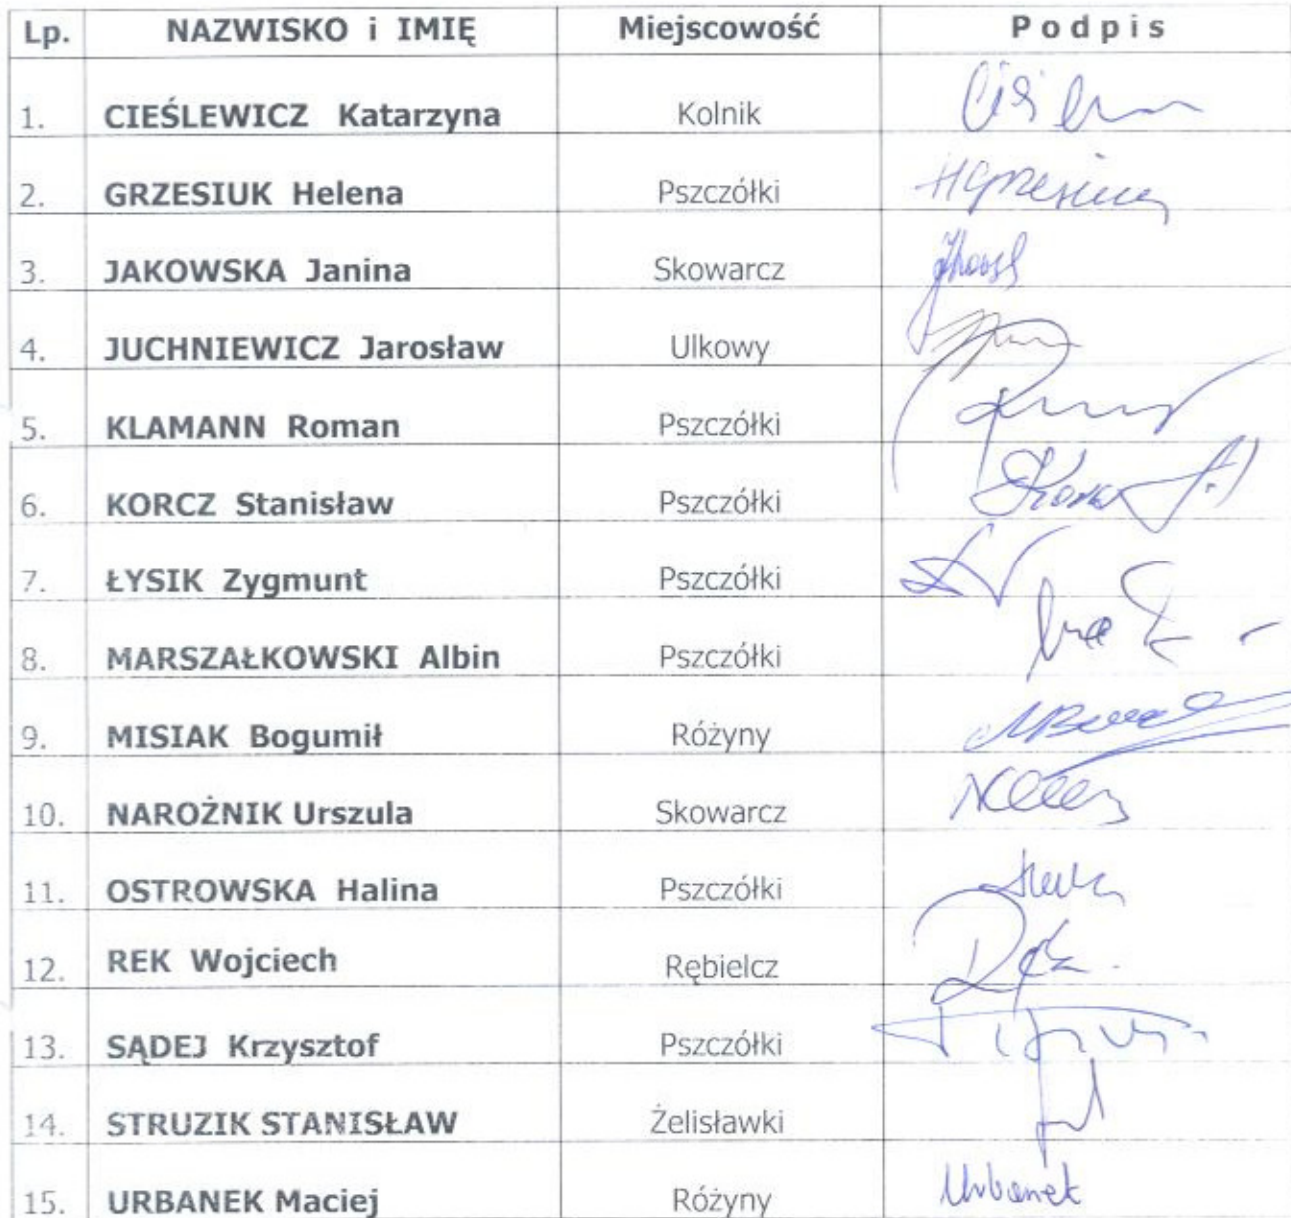 Lp. NAZWISKO i IMIĘ Miejscowość Podpis
1. CIEŚLEWICZ Katarzyna Kolnik
2. GRZESIUK Helena Pszczółki HGrzesiuk
3. JAKOWSKA Janina Skowarcz
4. JUCHNIEWICZ Jarosław Ulkowy
5. KLAMANN Roman Pszczółki
6. KORCZ Stanisław Pszczółki
7. ŁYSIK Zygmunt Pszczółki
8. MARSZAŁKOWSKI Albin Pszczółki
9. MISIAK Bogumił Różyny
10. NAROŻNIK Urszula Skowarcz
11. OSTROWSKA Halina Pszczółki
12. REK Wojciech Rębielcz
13. SĄDEJ Krzysztof Pszczółki
14. STRUZIK STANISŁAW Żelisławki
15. URBANEK Maciej Różyny Urbanek